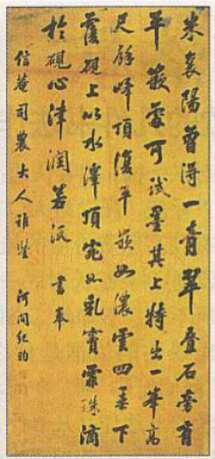 米襄陽曾得一青翠疊石
平嵌處可試墨其上特出一峯高
尺餘峰頂復平嵌如濃雲四垂下
覆硯上以水澤頂宛如乳竇霏珠滴
於硯心津潤若 書奉
信菴司農大人雅鑒 河間紀昀